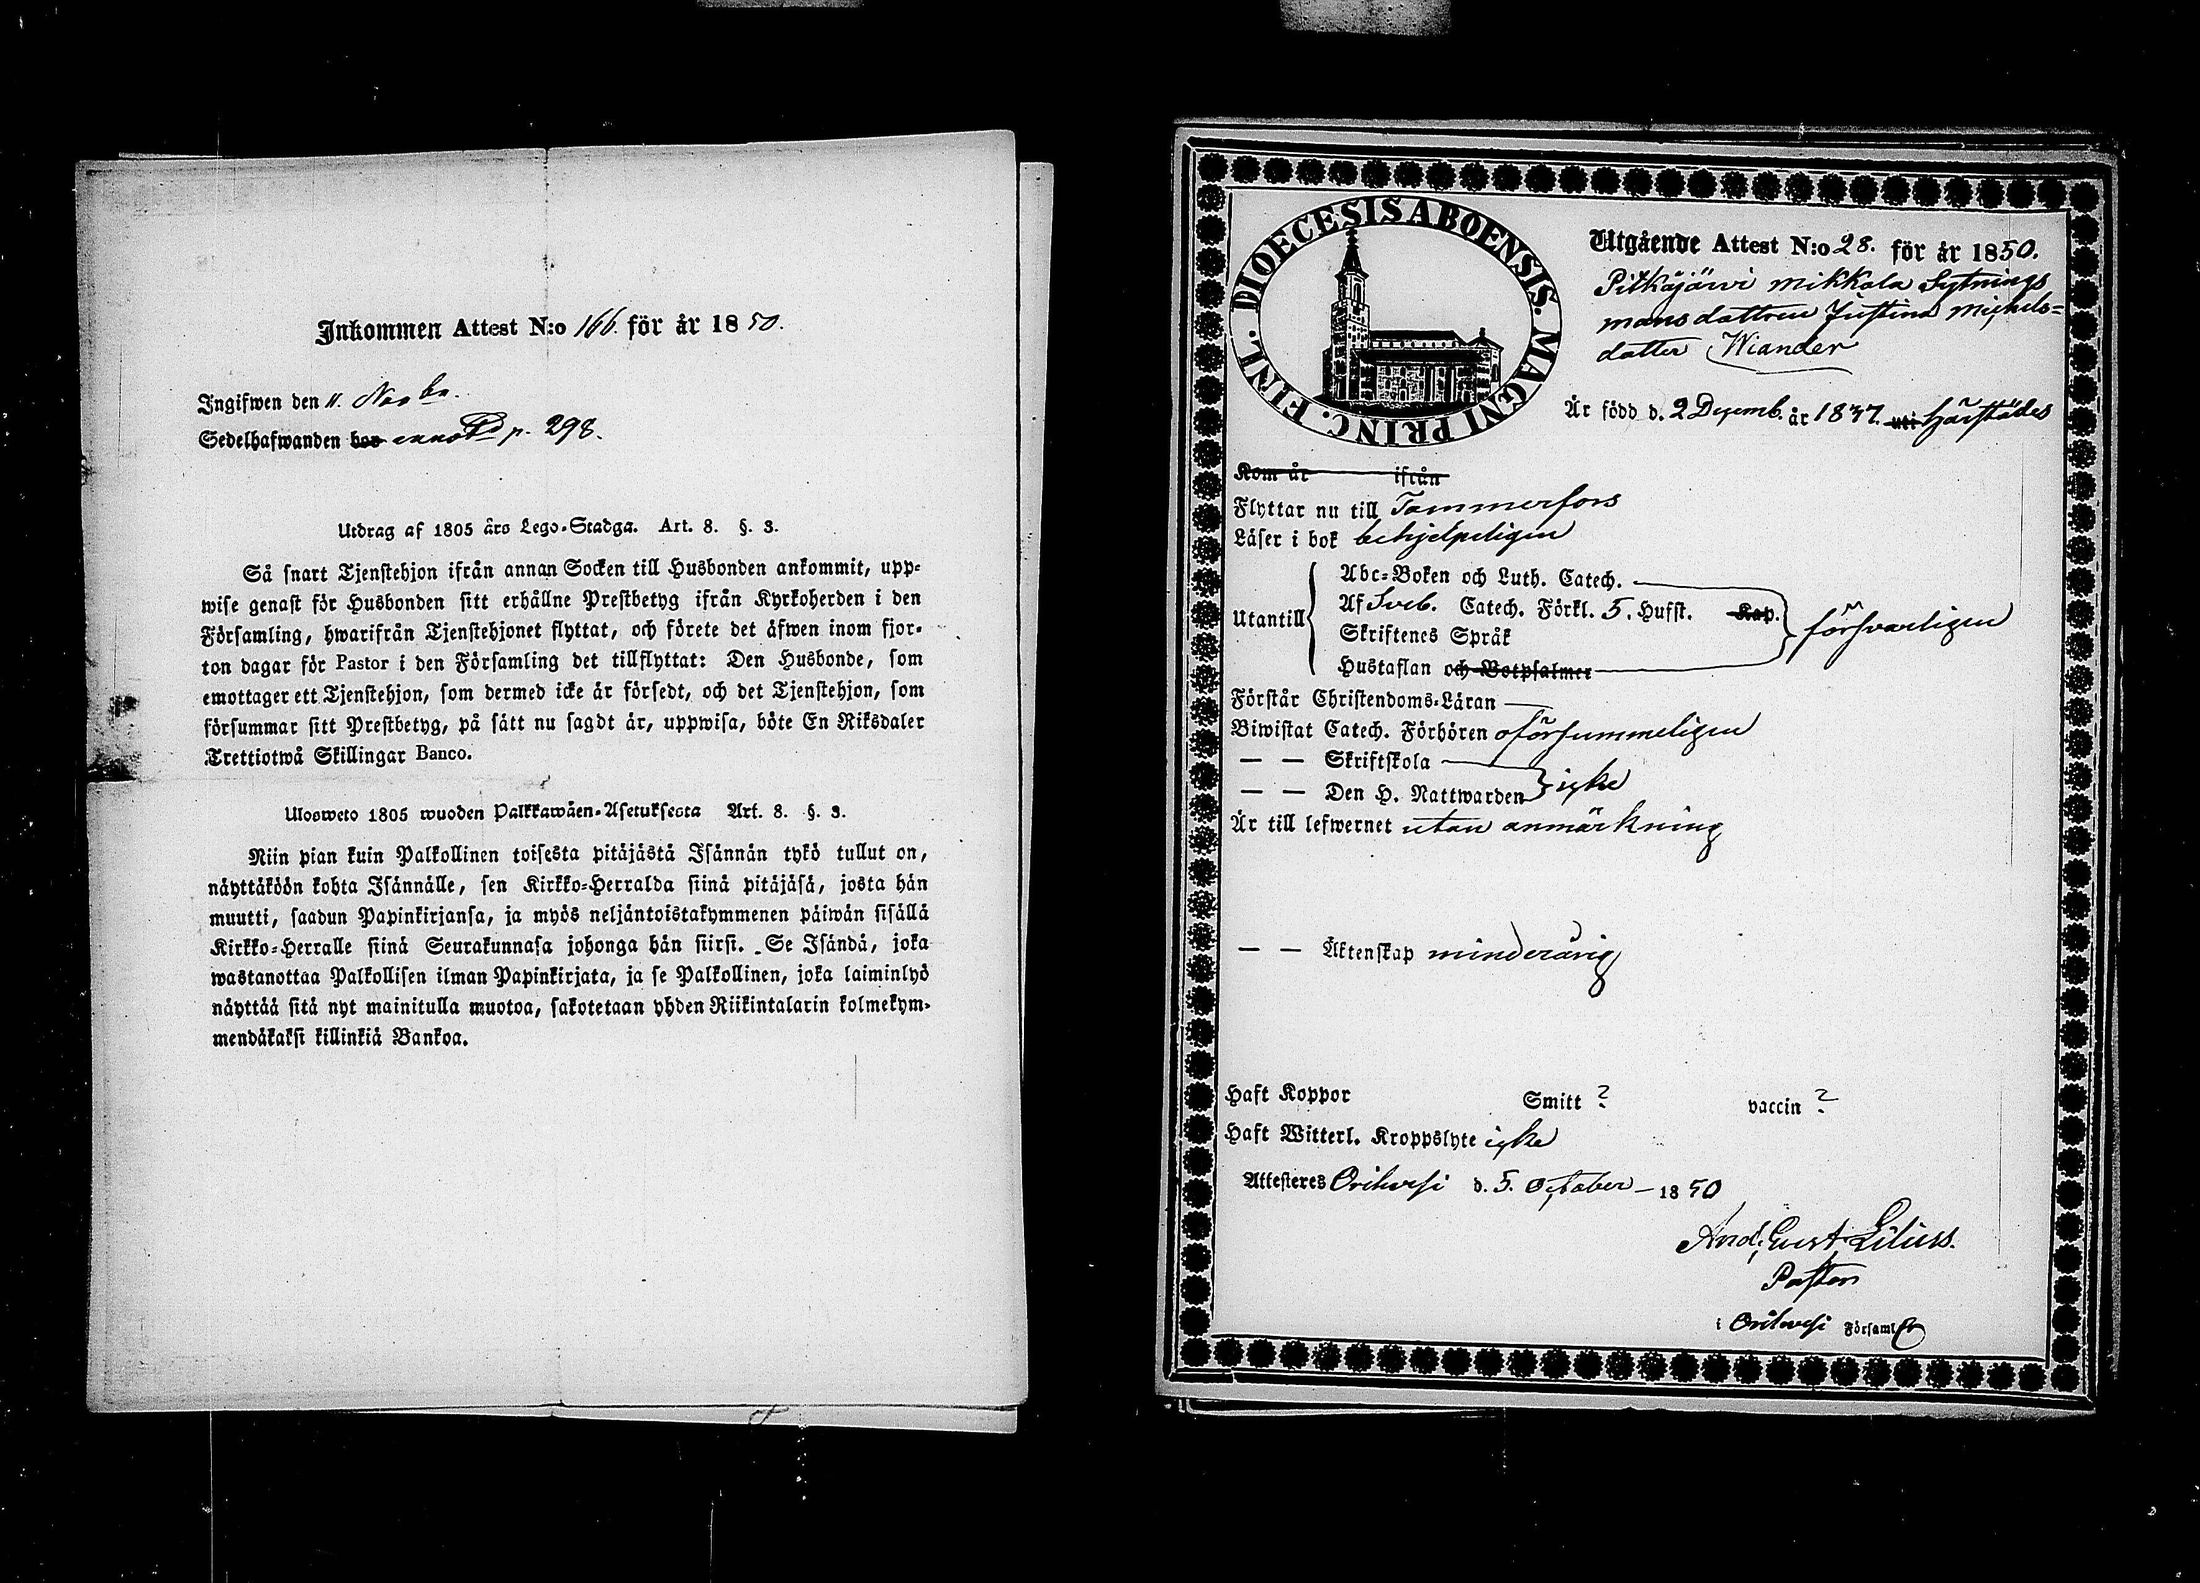 Inkommen Attest N:o 166. för år 1850.
Ingifwen den 11. Novbr.
Sedelhafwanden hos annotd p. 298.
Utdrag af 1805 års Lego-Stadga. Art. 8. §. 3.
Så snart Tjenstehjon ifrån annan Socken till Husbonden ankommit, upp-
wise genast för Husbonden sitt erhållne Prestbetyg ifrån Kyrkoherden i den
Församling, hwarifrån Tjenstehjonet flyttat, och förete det äfwen inom fjor-
ton dagar för Pastor i den Församling det tillflyttat: Den Husbonde, som
emottager ett Tjenstehjon, som dermed icke är försedt, och det Tjenstehjon, som
försummar sitt Prestbetyg, på sätt nu sagdt är, uppwisa, böte En Riksdaler
Trettiotwå Skillingar Banco.
Ulosweto 1805 wuoden Palkkawäen-Asetuksesta Art. 8. §. 3.
Niin pian kuin Palkollinen toisesta pitäjästä Isännän tykö tullut on,
näyttäköön kohta Isännälle, sen Kirkko-Herralda siinä pitäjäsä, josta hän
muutti, saadun Papinkirjansa, ja myös neljäntoistakymmenen päiwän sisällä
Kirkko-Herralle siinä Seurakunnasa johonga hän siirsi. Se Isändä, joka
wastanottaa Palkollisen ilman Papinkirjata, ja se Palkollinen, joka laiminlyö
näyttää sitä nyt mainitulla muotoa, sakotetaan yhden Riikintalarin kolmekym-
mendäkaksi killinkiä Bankoa.
DIOECESIS ABOENSIS. MAGNI PRINC. FINL.
Utgående Attest N:o 28. för år 1850.
Pitkäjärvi Mikkola Sytnings
mans dottren Justina Michels-
dotter Wiander
Är född d. 2 Decemb. år 1837. uti härstädes
Kom år ifrån
Flyttar nu till Tammerfors
Läser i bok behjelpeligen
Utantill
Abc-Boken och Luth. Catech.
Af Sveb. Catech. Förkl. 5. Hufst. Kap.
Skriftenes Språk
Hustaflan och Botpsalmer
försvarligen
Förstår Christendoms-Läran
Biwistat Catech. Förhören oförsummeligen
— — Skriftskola
— — Den H. Nattwarden icke
Är till lefwernet utan anmärkning
— — Äktenskap minderårig
Haft Koppor Smitt ? vaccin ?
Haft Witterl. Kroppslyte icke
Attesteres Orihvesi d. 5. October 1850
And. Gust. Lilius.
Pastor
i Orihvesi Församl.